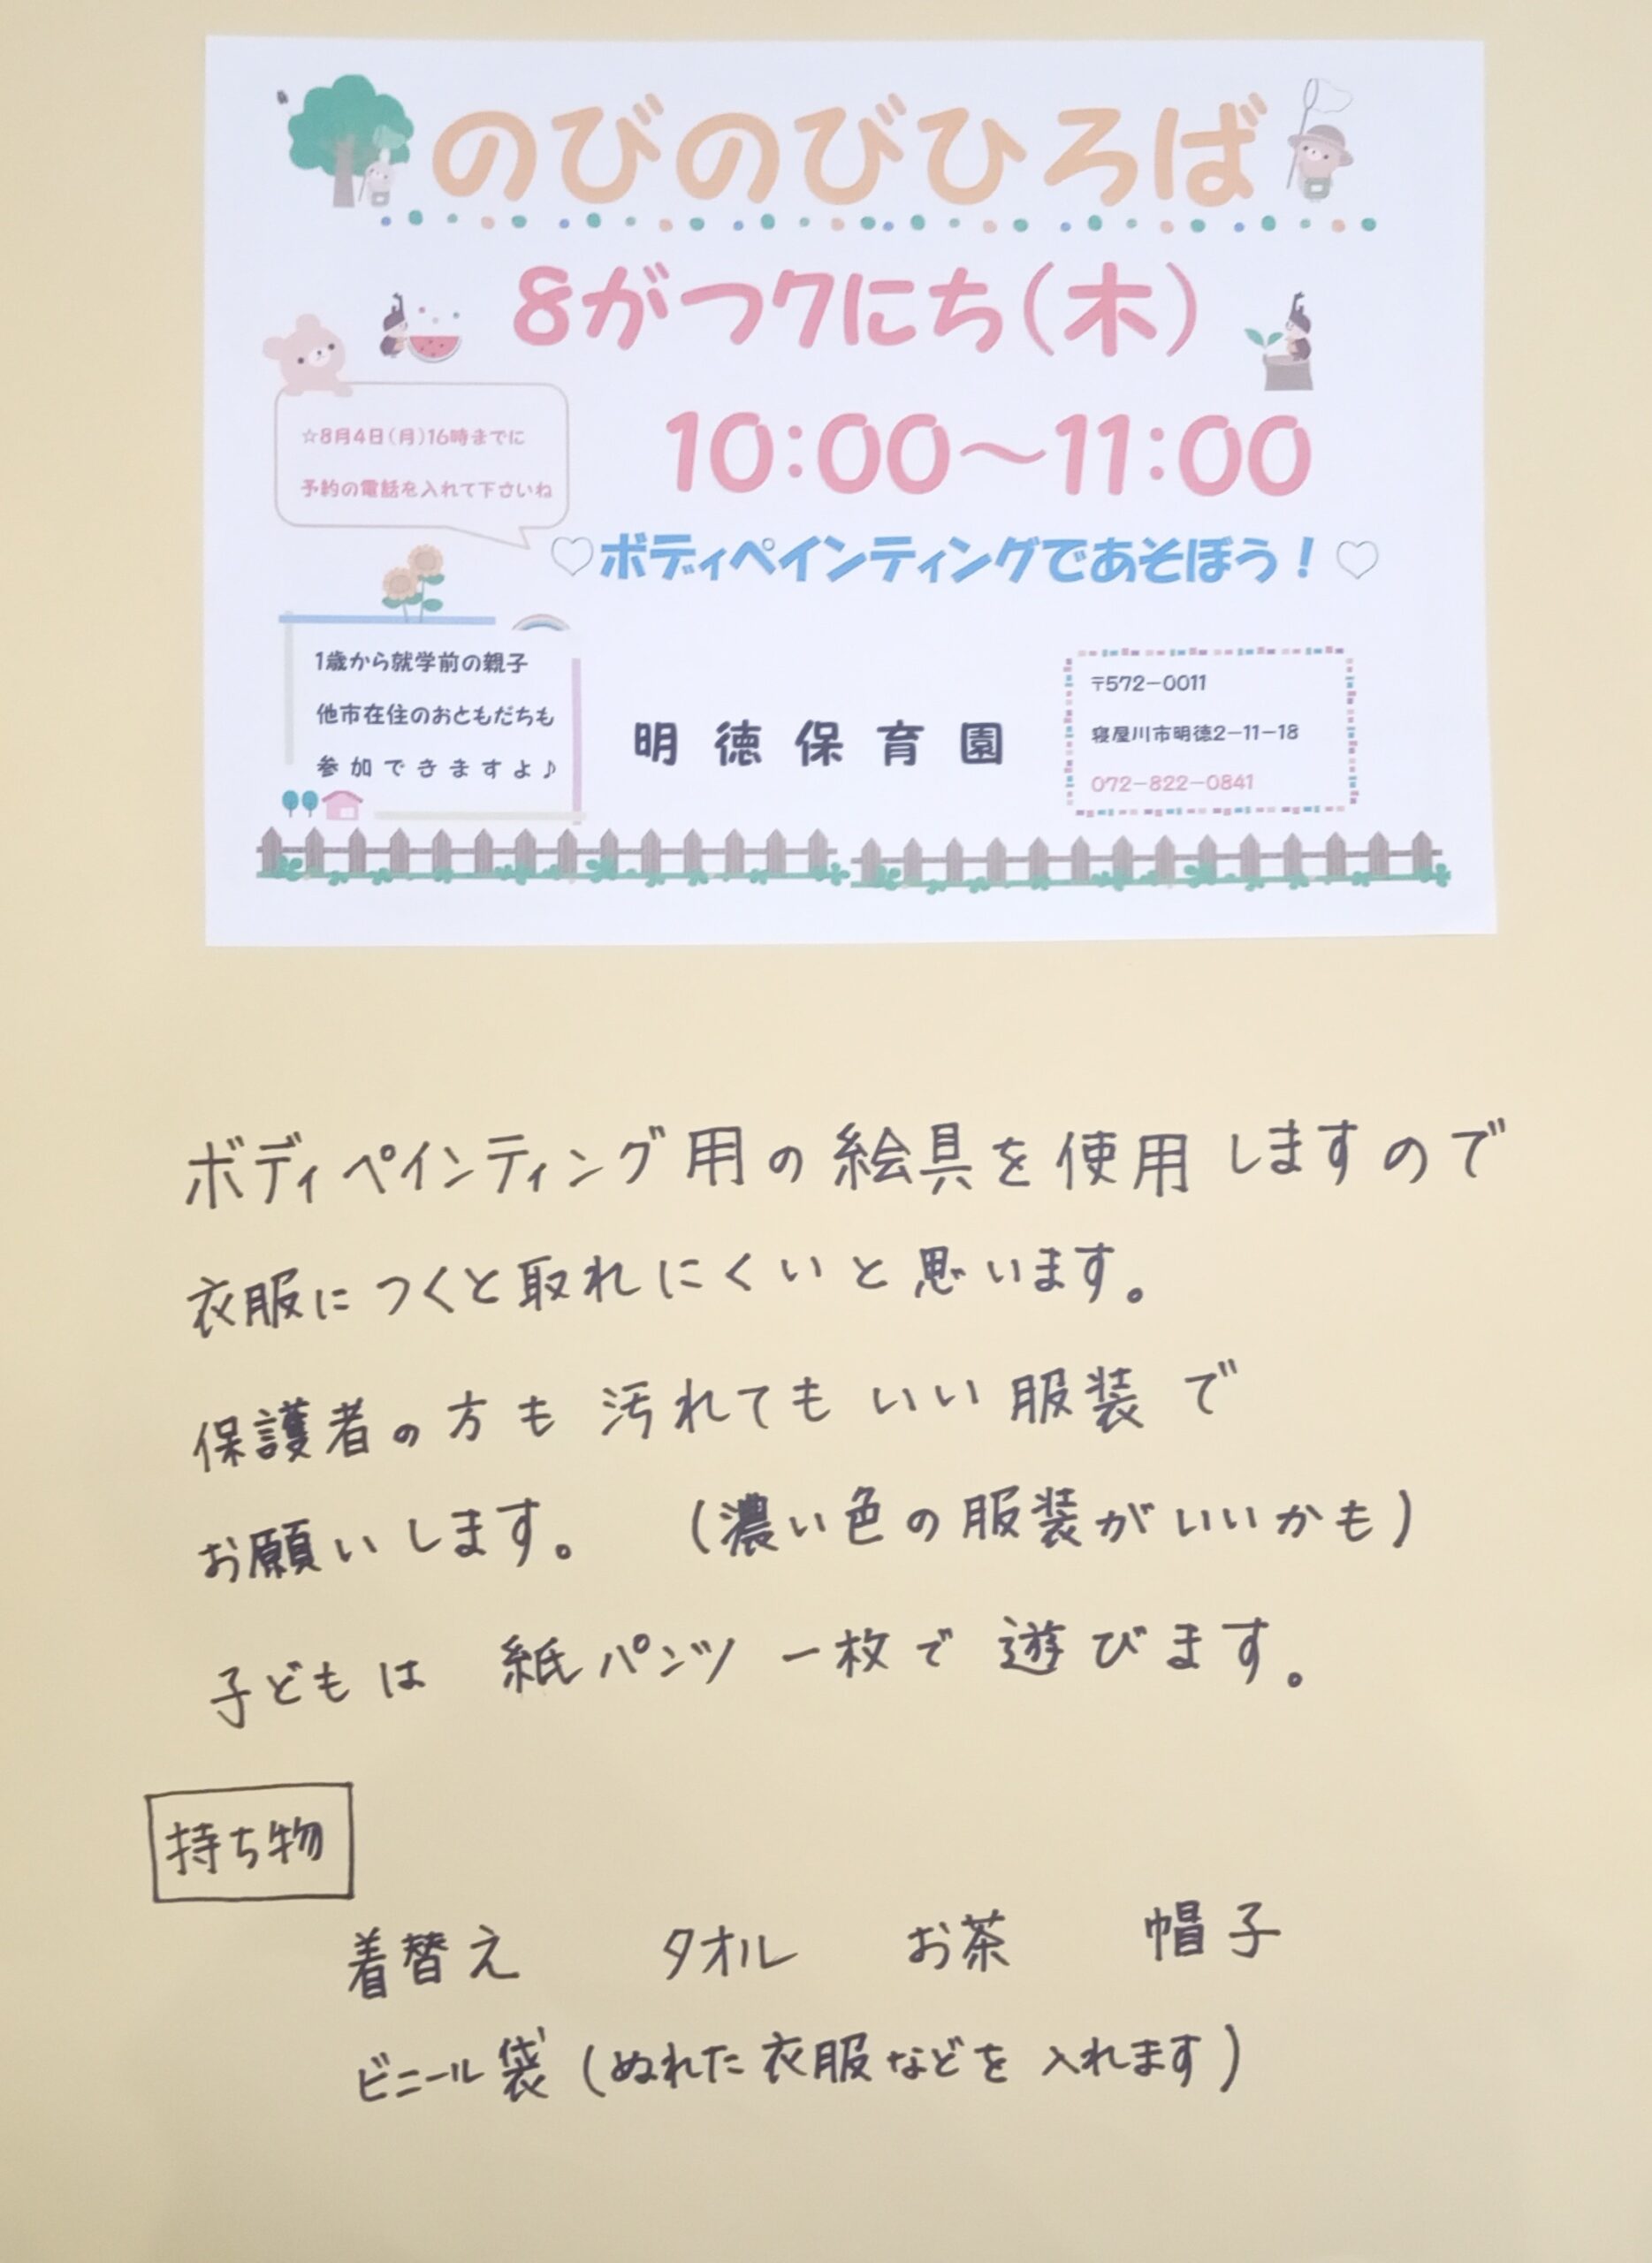 のびのびひろば
8がつ7にち(木)
☆8月4日(月)16時までに
予約の電話を入れて下さいね
10:00～11:00
♡ボディペインティングであそぼう！♡
1歳から就学前の親子
他市在住のおともだちも
参加できますよ♪
明徳保育園
〒572－0011
寝屋川市明徳2－11－18
072－822－0841
ボディペインティング用の絵具を使用しますので
衣服につくと取れにくいと思います。
保護者の方も汚れてもいい服装で
お願いします。 (濃い色の服装がいいかも)
子どもは 紙パンツ一枚で遊びます。
持ち物
着替え タオル お茶 帽子
ビニール袋(ぬれた衣服などを入れます)